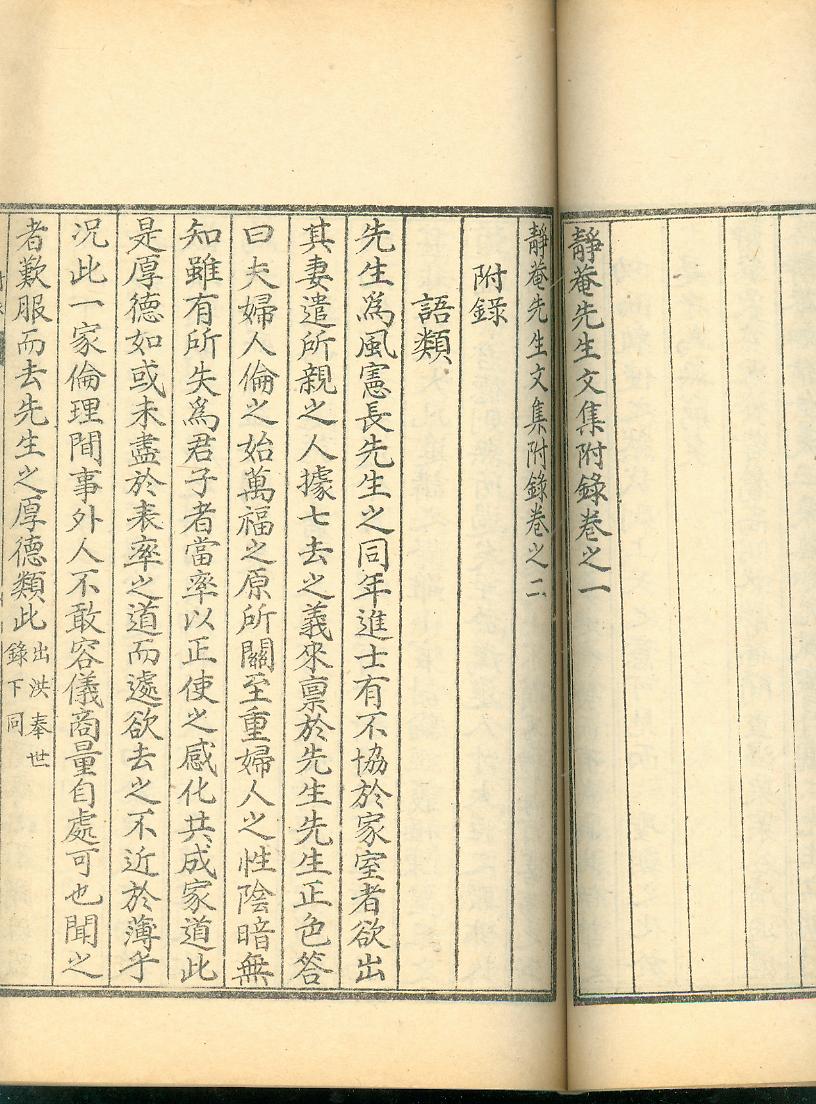 靜菴先生文集附錄卷之一
靜菴先生文集附錄卷之二
附錄
語類
先生爲風憲長先生之同年進士有不協於家室者欲出
其妻遣所親之人據七去之義來禀於先生先生正色答
曰夫婦人倫之始萬福之原所關至重婦人之性陰暗無
知雖有所失爲君子者當率以正使之感化共成家道此
是厚德如或未盡於表率之道而遽欲去之不近於薄乎
况此一家倫理間事外人不敢容儀商量自處可也聞之
者歎服而去先生之厚德類此
出洪奉世
錄下同